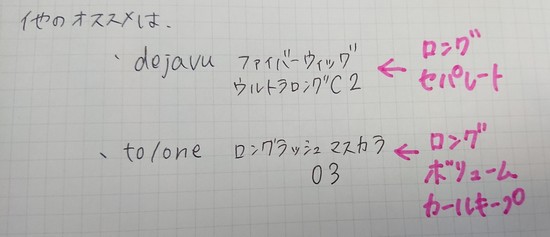 他のオススメは、
、dejavu ファイバーウィッグ ← ロング
ウルトラロングC2 セパレート
、to/one ロングラッシュマスカラ ← ロング
03 ボリューム
カールキープ